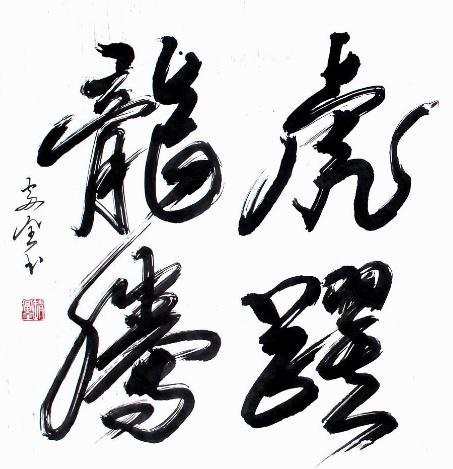 虎躍
龍騰
书